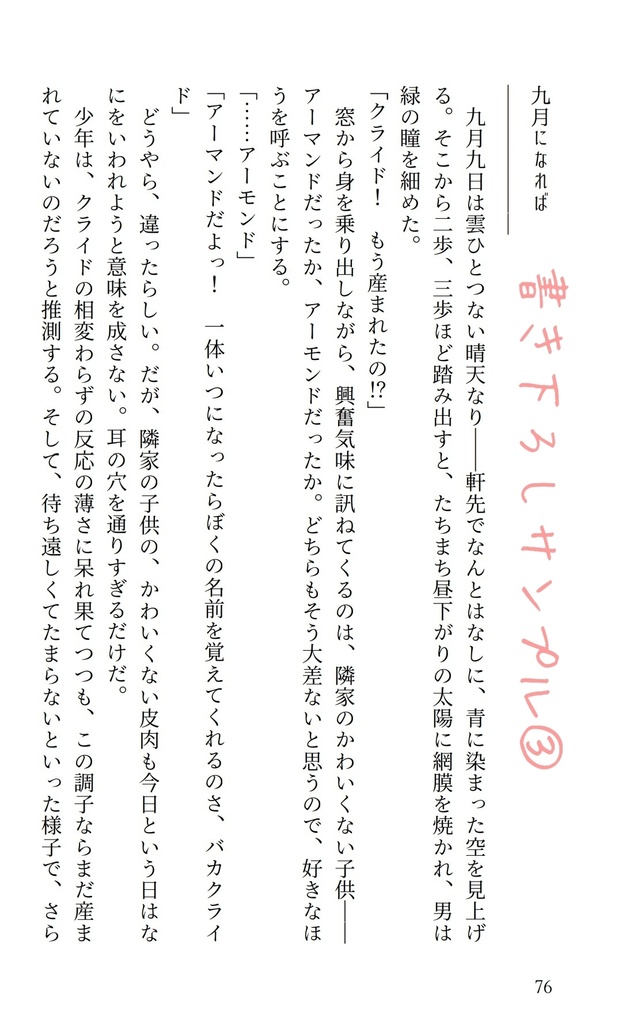 九月になれば
書き下ろしサンプル③
九月九日は雲ひとつない晴天なり――軒先でなんとはなしに、青に染まった空を見上げ
る。そこから二歩、三歩ほど踏み出すと、たちまち昼下がりの太陽に網膜を焼かれ、男は
緑の瞳を細めた。
「クライド！　もう産まれたの⁉」
窓から身を乗り出しながら、興奮気味に訊ねてくるのは、隣家のかわいくない子供――
アーマンドだったか、アーモンドだったか。どちらもそう大差ないと思うので、好きなほ
うを呼ぶことにする。
「……アーモンド」
「アーマンドだよっ！　一体いつになったらぼくの名前を覚えてくれるのさ、バカクライ
ド」
どうやら、違ったらしい。だが、隣家の子供の、かわいくない皮肉も今日という日はな
にをいわれようと意味を成さない。耳の穴を通りすぎるだけだ。
少年は、クライドの相変わらずの反応の薄さに呆れ果てつつも、この調子ならまだ産ま
れていないのだろうと推測する。そして、待ち遠しくてたまらないといった様子で、さら
76